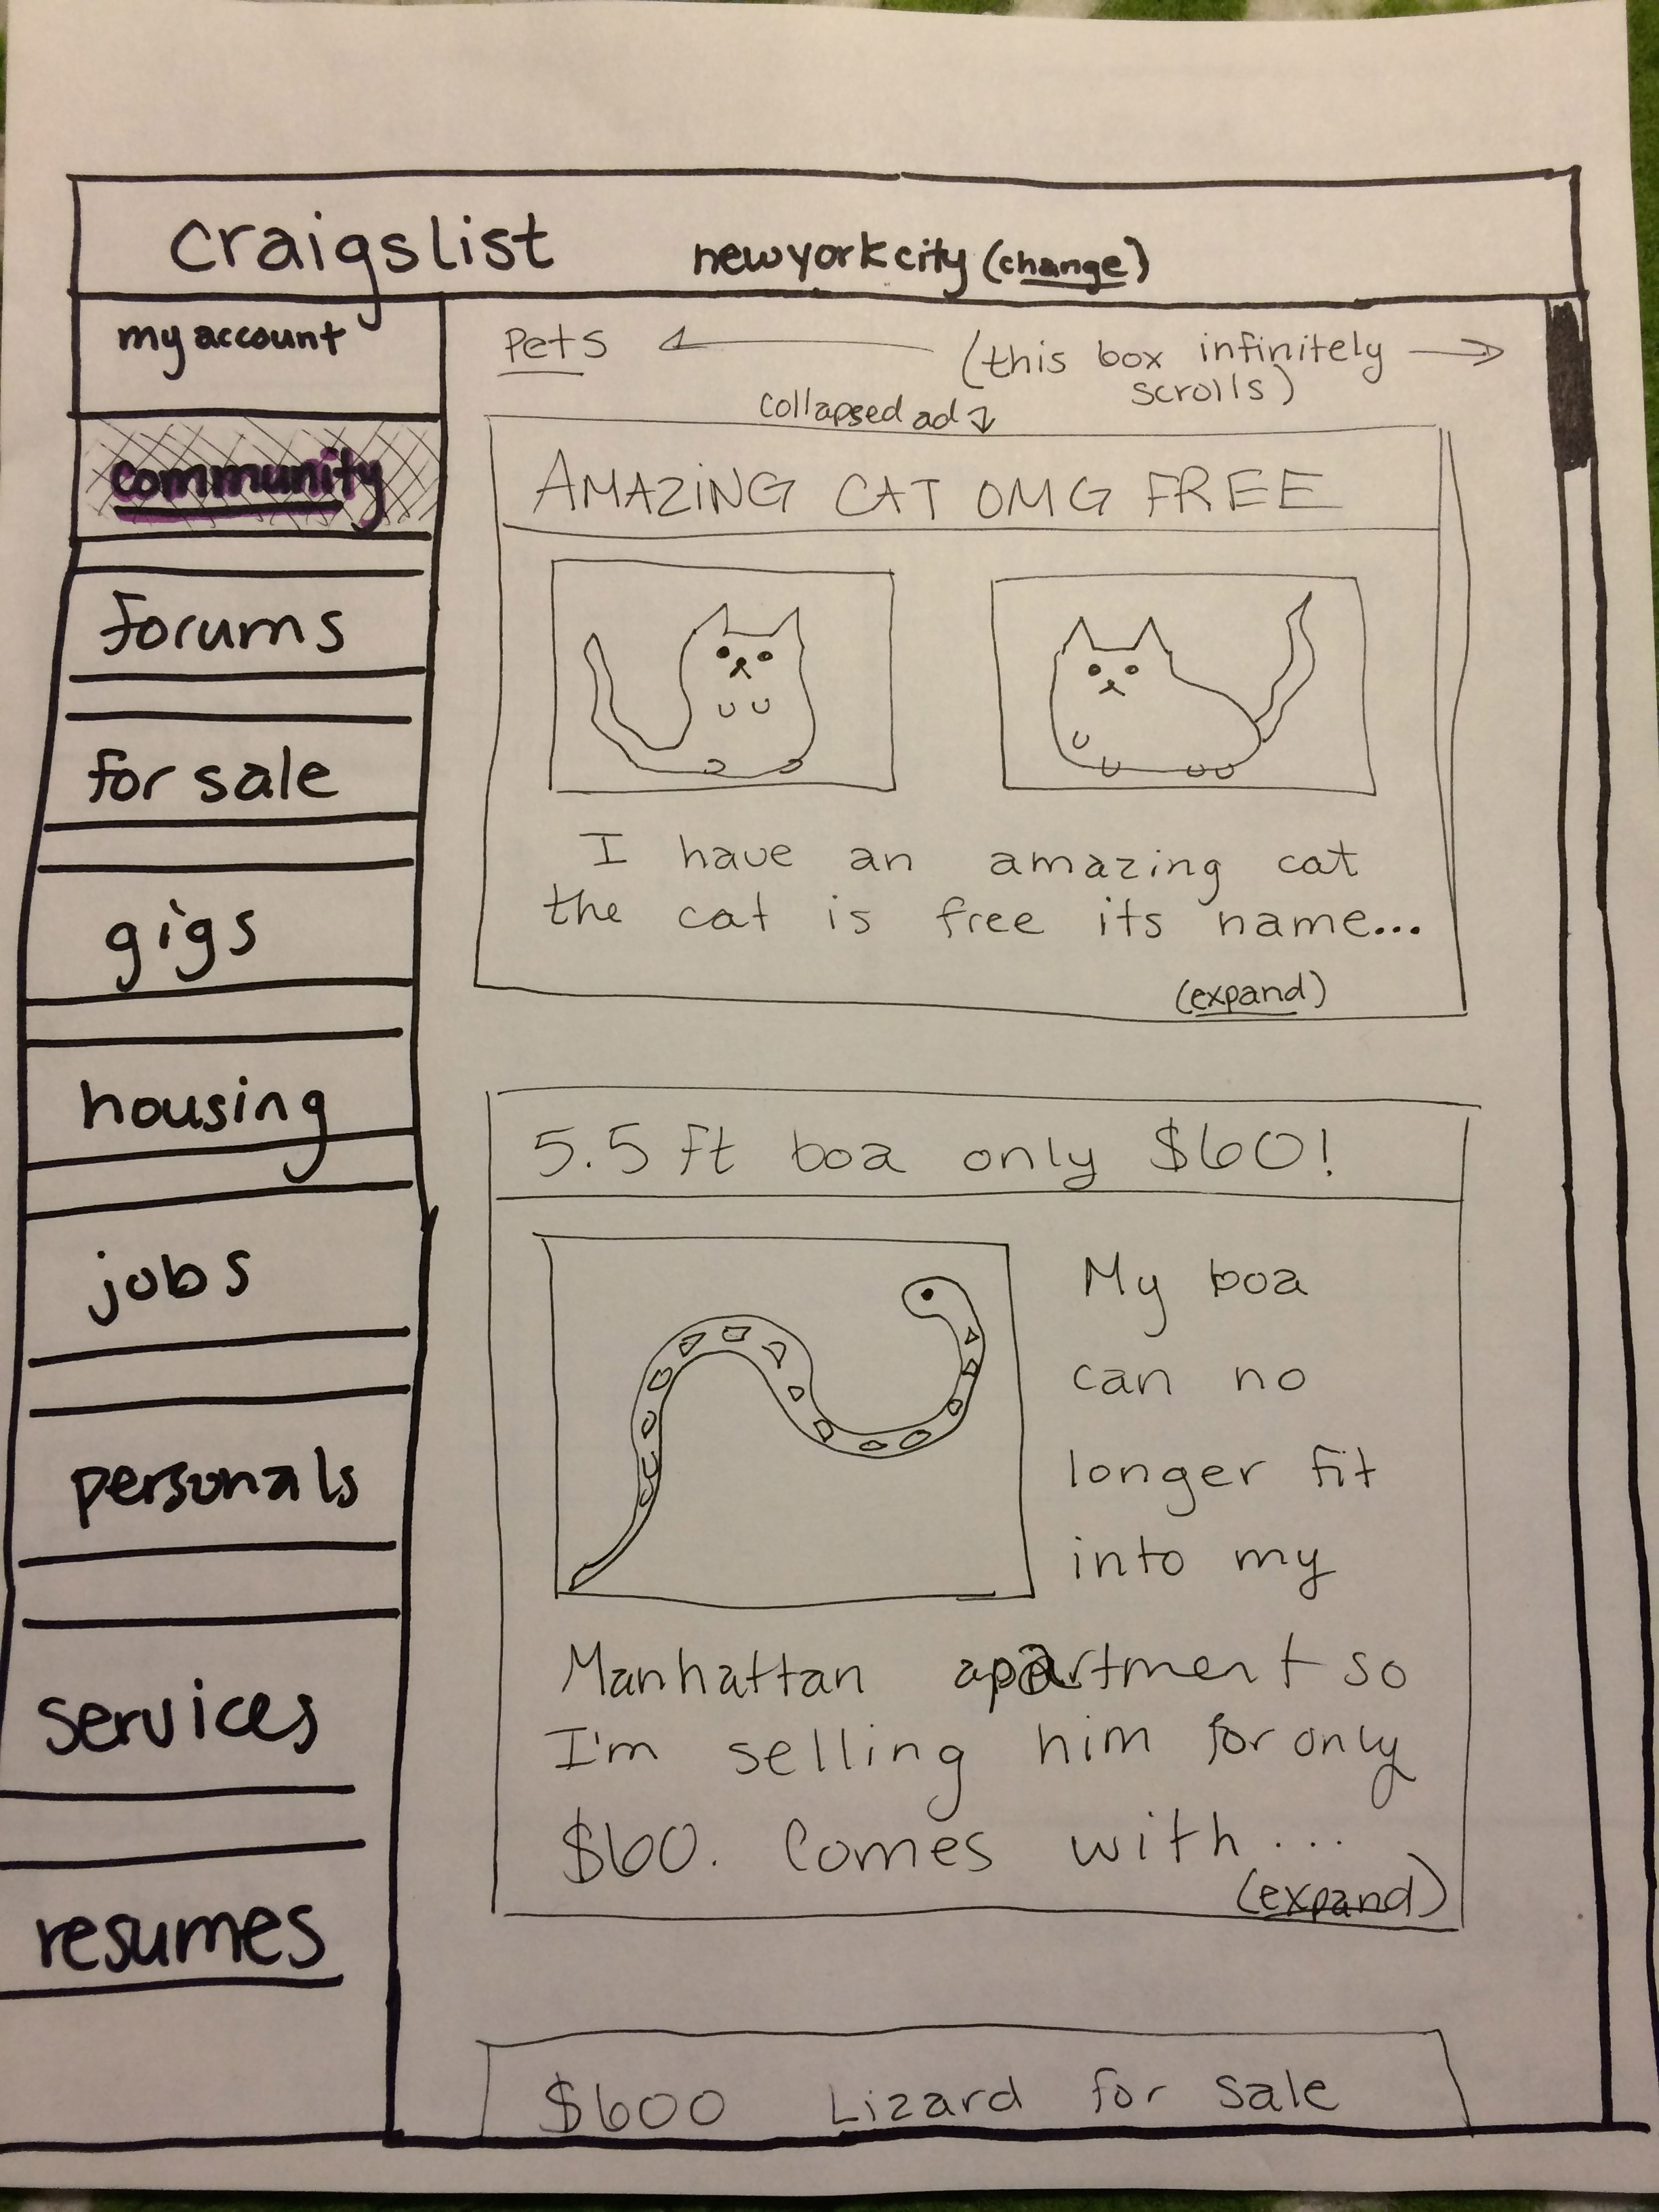 craigslist
newyorkcity (change)
my account
community
forums
for sale
gigs
housing
jobs
personals
services
resumes
Pets
(this box infinitely
scrolls)
collapsed ad
AMAZING CAT OMG FREE
I have an amazing cat
the cat is free its name...
(expand)
5.5 ft boa only $60!
My boa
can no
longer fit
into my
Manhattan apartment so
I'm selling him for only
$60. Comes with...
(expand)
$600 Lizard for sale